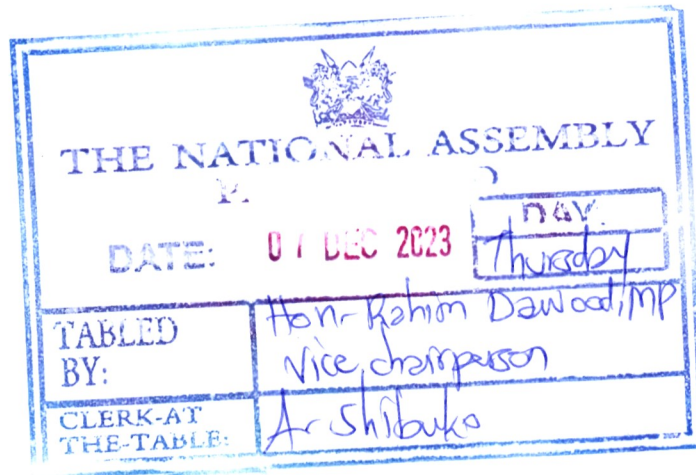 THE NATIONAL ASSEMBLY
DATE: 07 DEC 2023
DAY.
Thursday
TABLED BY:
Hon. Rahim Dawood, MP
Vice chairperson
CLERK-AT THE-TABLE:
A. Shibuko